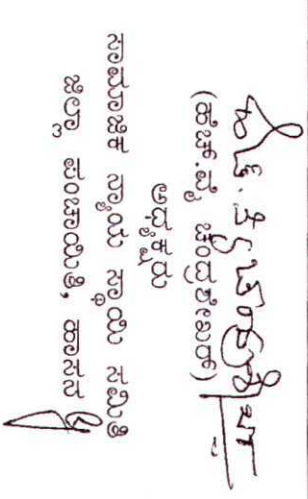 (ಹೆಚ್.ವೈ ಚಂದ್ರಶೇಖರ್)
ಅಧ್ಯಕ್ಷರು
ಸಾಮಾಜಿಕ ನ್ಯಾಯ ಸ್ಥಾಯಿ ಸಮಿತಿ
ಜಿಲ್ಲಾ ಪಂಚಾಯಿತಿ, ಹಾಸನ